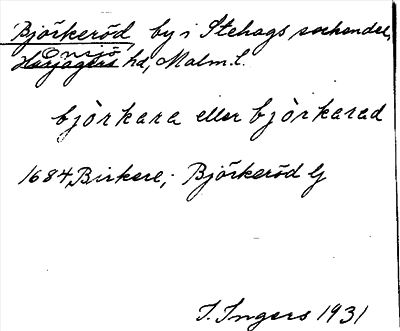 Björkeröd by i Stehags sockendel,
Onsjö
Harjagers hd, Malm. l.
björkara eller björkarad
1684 Birkere; Björkeröd Lj
I. Ingers 1931